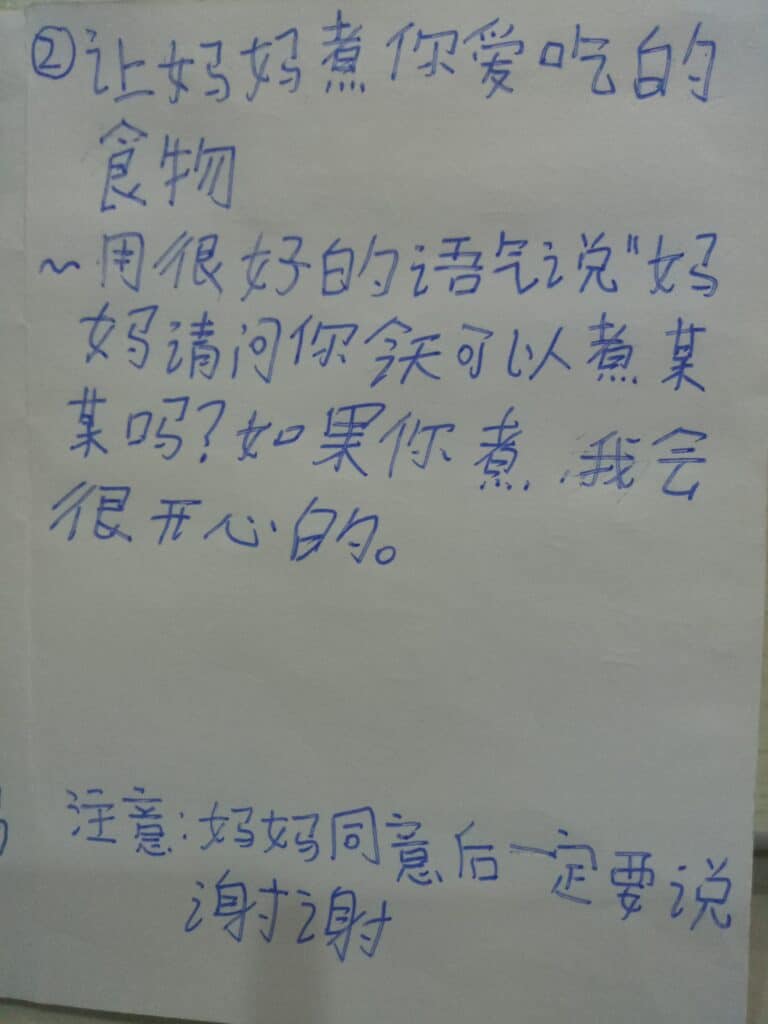 ②让妈妈煮你爱吃的
食物
~用很好的语气说"妈
妈请问你今天可以煮某
某吗?如果你煮,我会
很开心的。
注意:妈妈同意后一定要说
谢谢